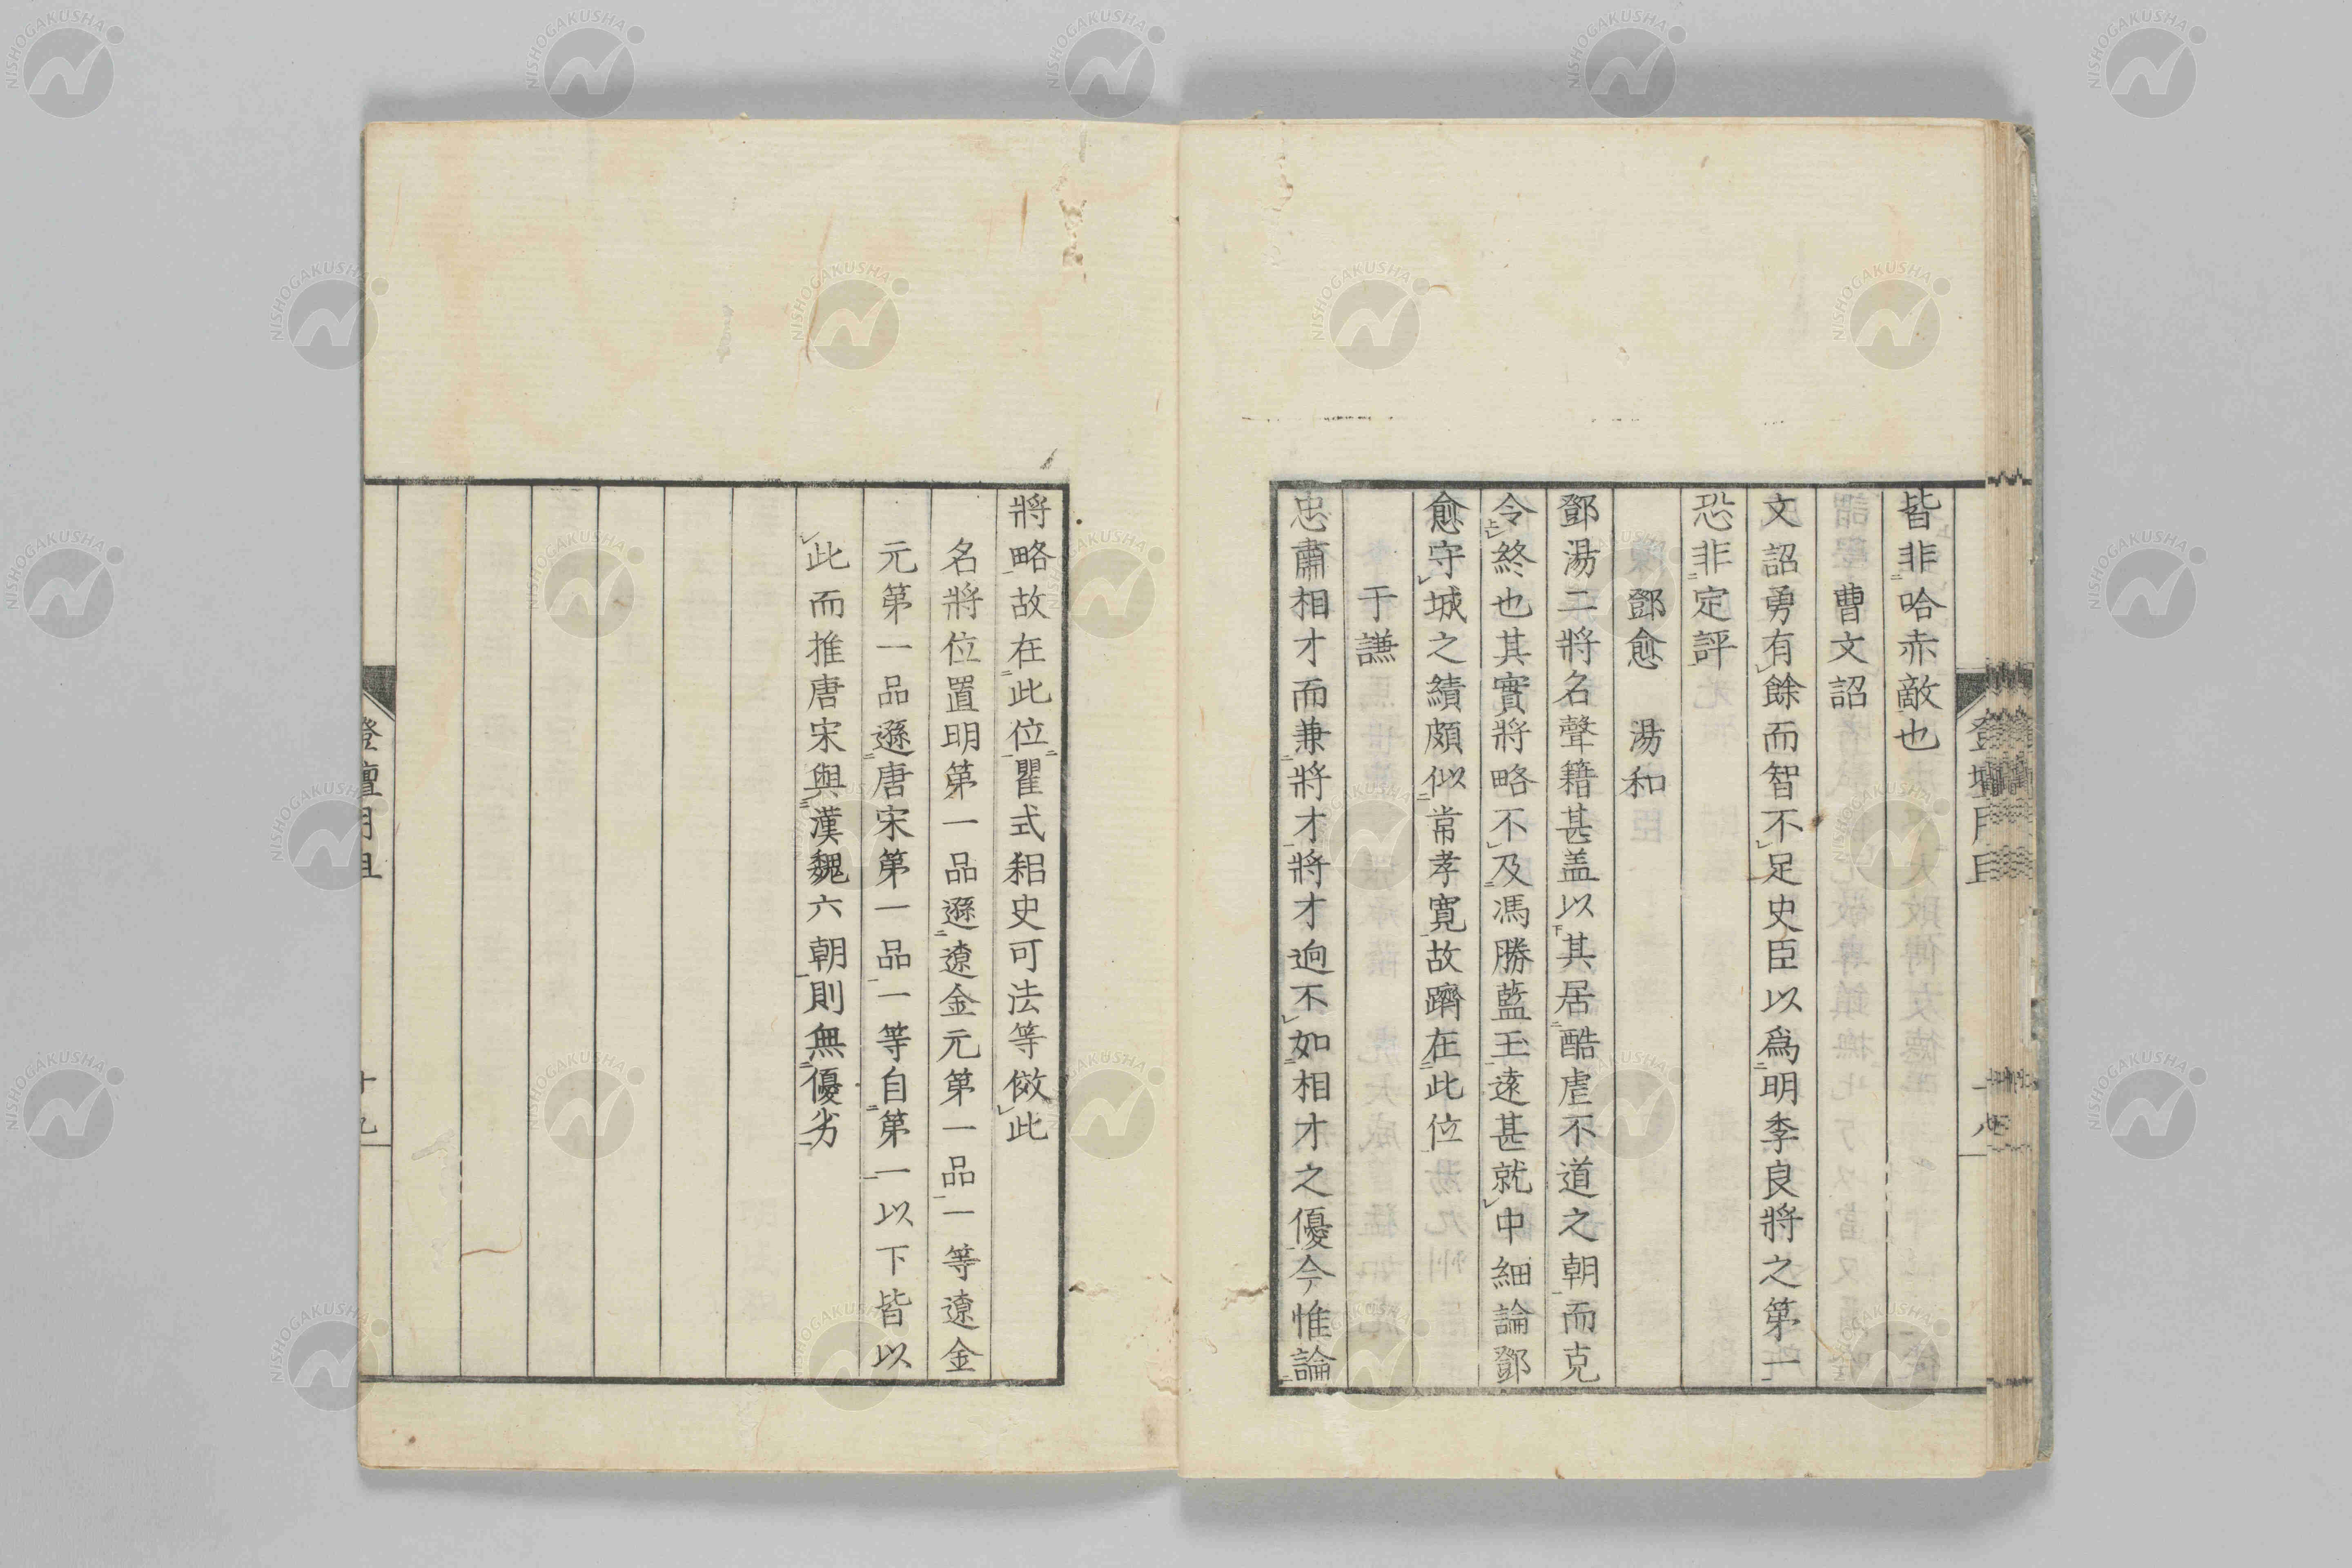 皆非哈赤敵也
曹文詔
文詔勇有餘而智不足史臣以爲明季良將之第一
恐非定評
鄧愈　湯和
鄧湯二將名聲籍甚盖以其居酷虐不道之朝而克
令終也其實將略不及馮勝藍玉遠甚就中細論鄧
愈守城之績頗似常孝寬故躋在此位
于謙
忠肅相才而兼將才將才逈不如相才之優今惟論
將略故在此位瞿式耜史可法等倣此
名將位置明第一品遜遼金元第一品一等遼金
元第一品遜唐宋第一品一等自第一以下皆以
此而推唐宋與漢魏六朝則無優劣
登壇月旦
十九
NISHOGAKUSHA